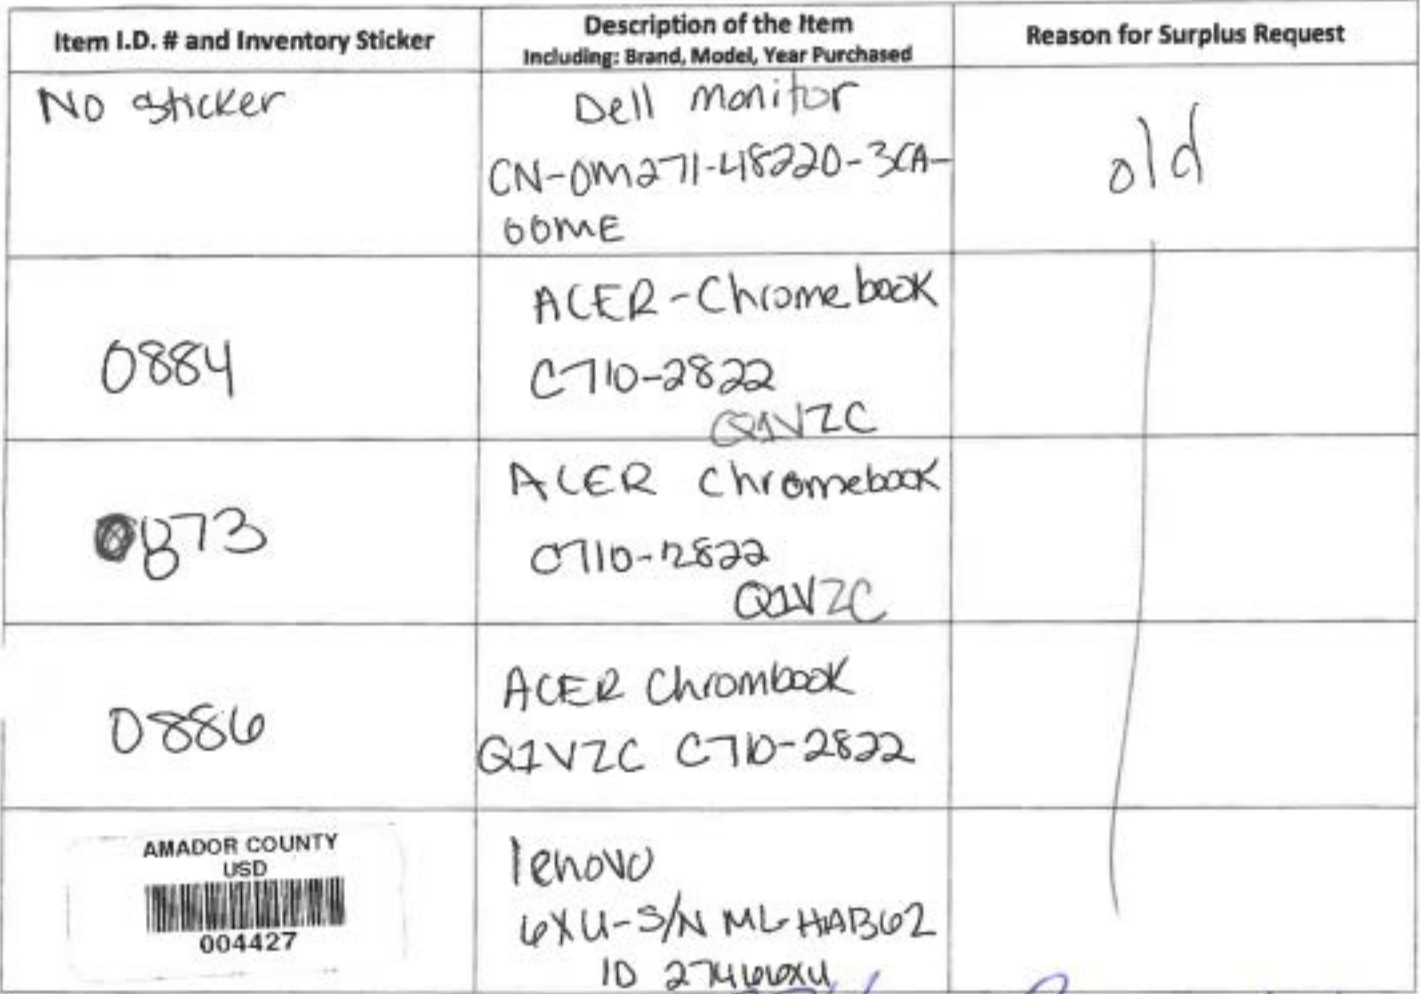 Item I.D. # and Inventory Sticker
Description of the Item
Including: Brand, Model, Year Purchased
Reason for Surplus Request
No sticker
Dell monitor
CN-0M271-48220-3CA-
00ME
old
ACER-Chromebook
0884
C710-2822
Q1VZC
ACER Chromebook
0873
C710-2822
Q1VZC
ACER Chrombook
0886
Q1VZC C710-2822
AMADOR COUNTY
USD
004427
lenovo
6XU-S/N ML-HAB62
ID 27466XU